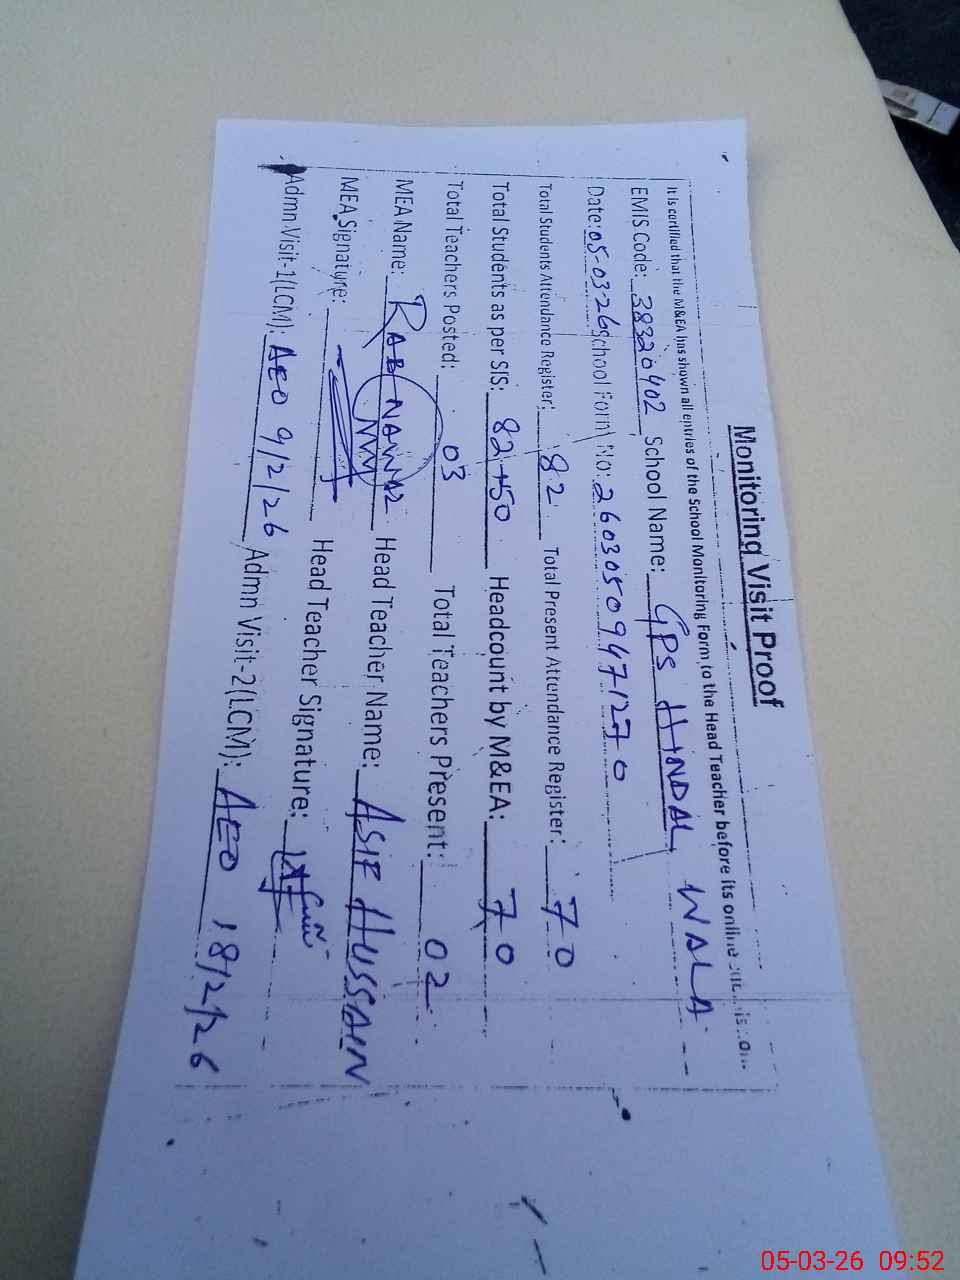 Monitoring Visit Proof
It is certified that the M&EA has shown all entries of the School Monitoring Form to the Head Teacher before its online
EMIS Code: 38320402 School Name: GPS HINDAL WALA
Date: 05-03-26 School Form No: 2603050947127 0
Total Students Attendance Register: 82 Total Present Attendance Register: 70
Total Students as per SIS: 82+50 Headcount by M&EA: 70
Total Teachers Posted: 03 Total Teachers Present: 02
MEA Name: RAB NAWAZ Head Teacher Name: ASIF HUSSAIN
MEA Signature: Head Teacher Signature:
Admn Visit-1(LCM): AEO 9/2/26 Admn Visit-2(LCM): AEO 18/2/26
05-03-26 09:52